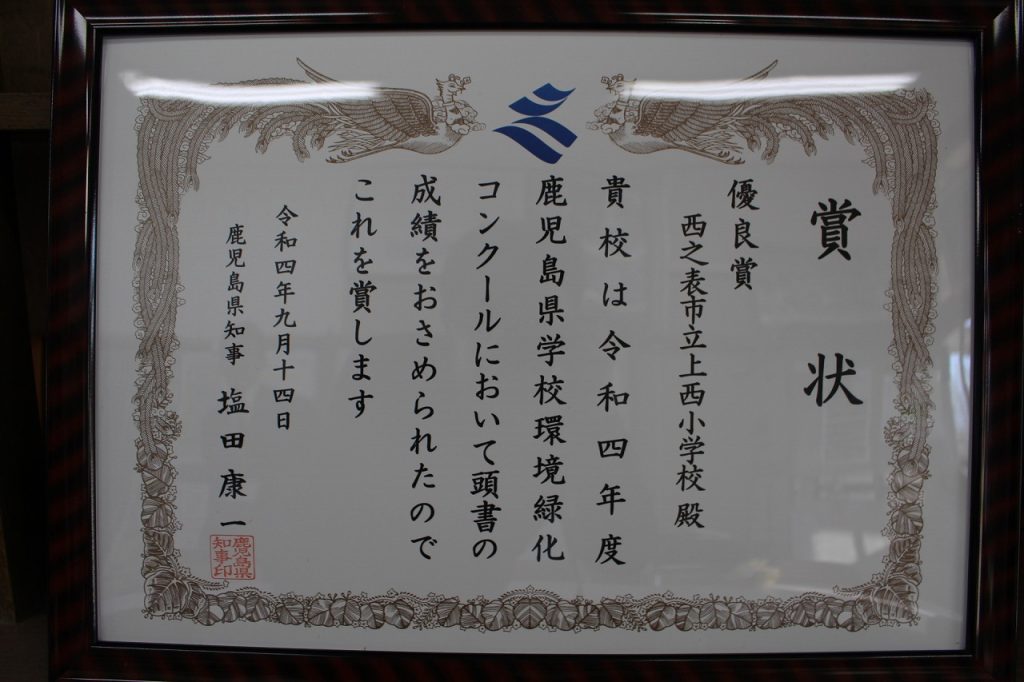 賞状
優良賞
西之表市立上西小学校殿
貴校は令和四年度
鹿児島県学校環境緑化
コンクールにおいて頭書の
成績をおさめられたので
これを賞します
令和四年九月十四日
鹿児島県知事 塩田康一
鹿児島県
知事印